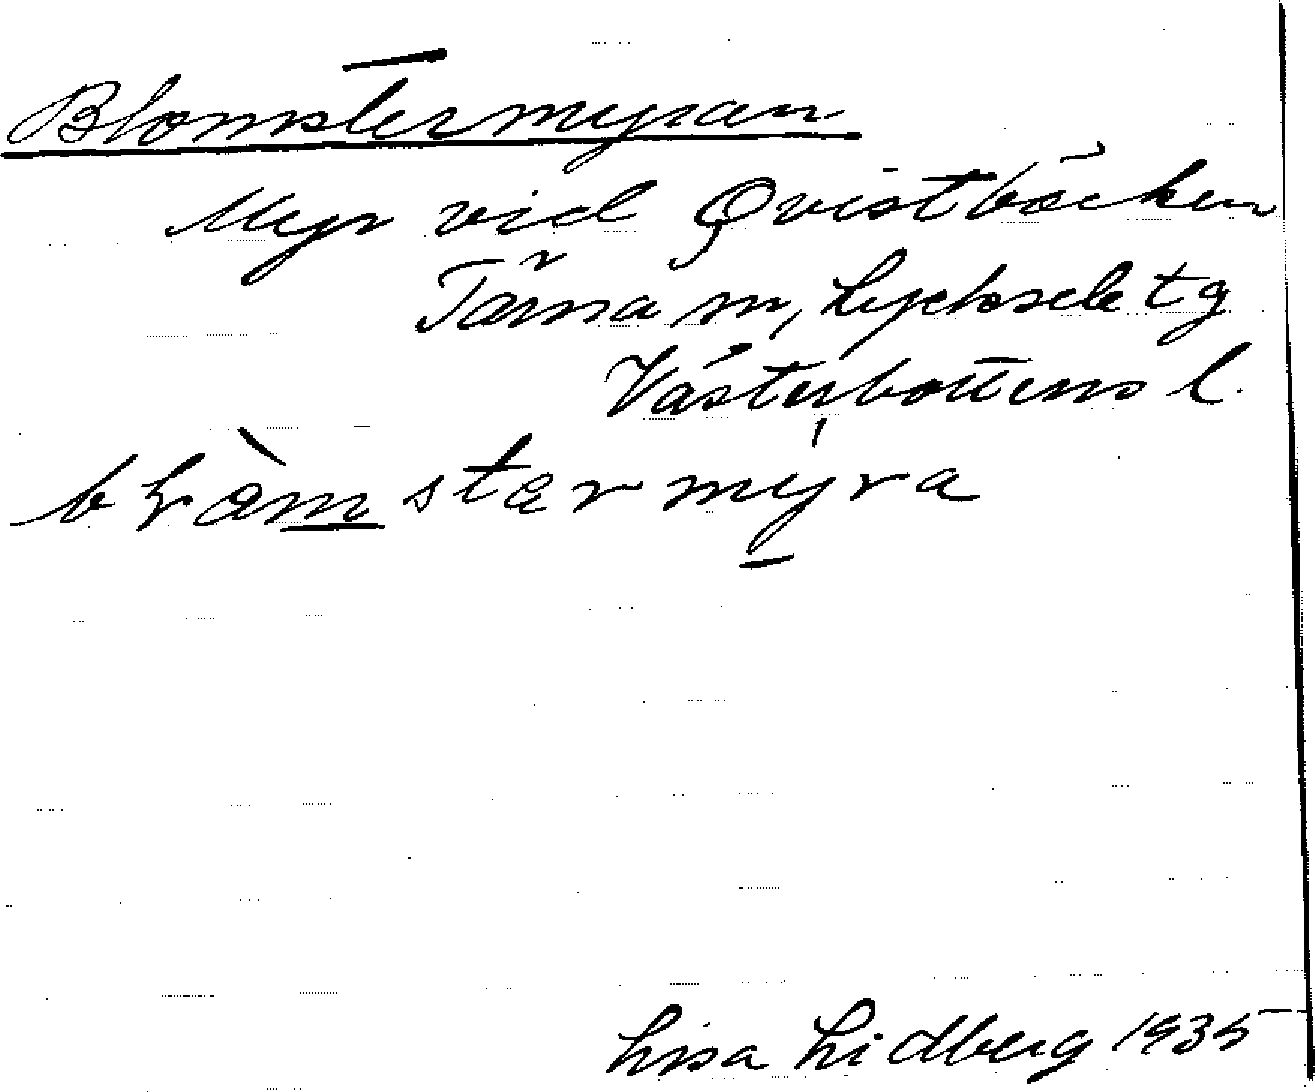 Blomstermyran
Myr vid Qvistbäcken
Tärna sn, Lycksele tg
Västerbottens l.
blòmstærmy̱ra
Lisa Lidberg 1935